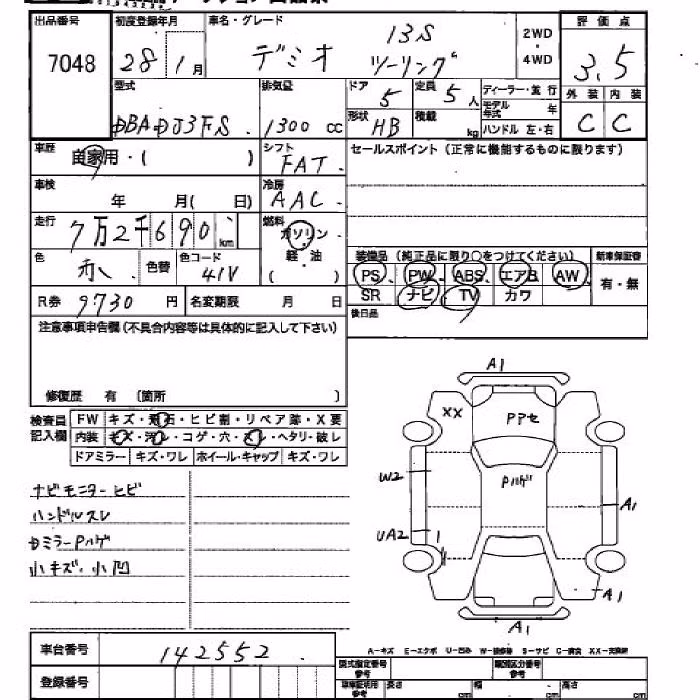 出品番号 初度登録年月 車名・グレード 評価点
7048 28 1月 デミオ 13S ツーリング 2WD・4WD 3.5
型式 排気量 ドア 定員 ディーラー・並行 外装 内装
DBA DJ3FS 1300cc 5 5人 モデル年式 年 C C
形状 HB 積載 kg ハンドル 左・右
車歴 自家用・( ) シフト FAT セールスポイント(正常に機能するものに限ります)
車検 年 月( 日) 冷房 AAC
走行 7万2千690km 燃料 ガソリン・軽・油 ( )
色 赤 色替 色コード 41V
装備品(純正品に限り○をつけてください) 新車保証書
PS、PW、ABS、エアB、AW、 有・無
SR ナビ TV カワ
R券 9730円 名変期限 月 日 後日品
注意事項申告欄(不具合内容等は具体的に記入して下さい)
修復歴 有 〔箇所 〕
検査員記入欄 FW キズ・飛石・ヒビ割・リペア跡・X要
内装 キズ・汚レ・コゲ・穴・スレ・ヘタリ・破レ
ドアミラー キズ・ワレ ホイール・キャップ キズ・ワレ
ナビモニターヒビ
ハンドルスレ
カミラーPハゲ
小キズ・小凹
A1
XX Pアセ
Pハゲ
W2
A1
UA2
A1
A1
A-キズ E-エクボ U-凹み W-補修跡 S-サビ C-腐食 XX-交換済
車台番号 142552
登録番号
型式指定番号 参考 類別区分番号 参考
車庫証明用 参考 長さ cm 幅 cm 高さ cm